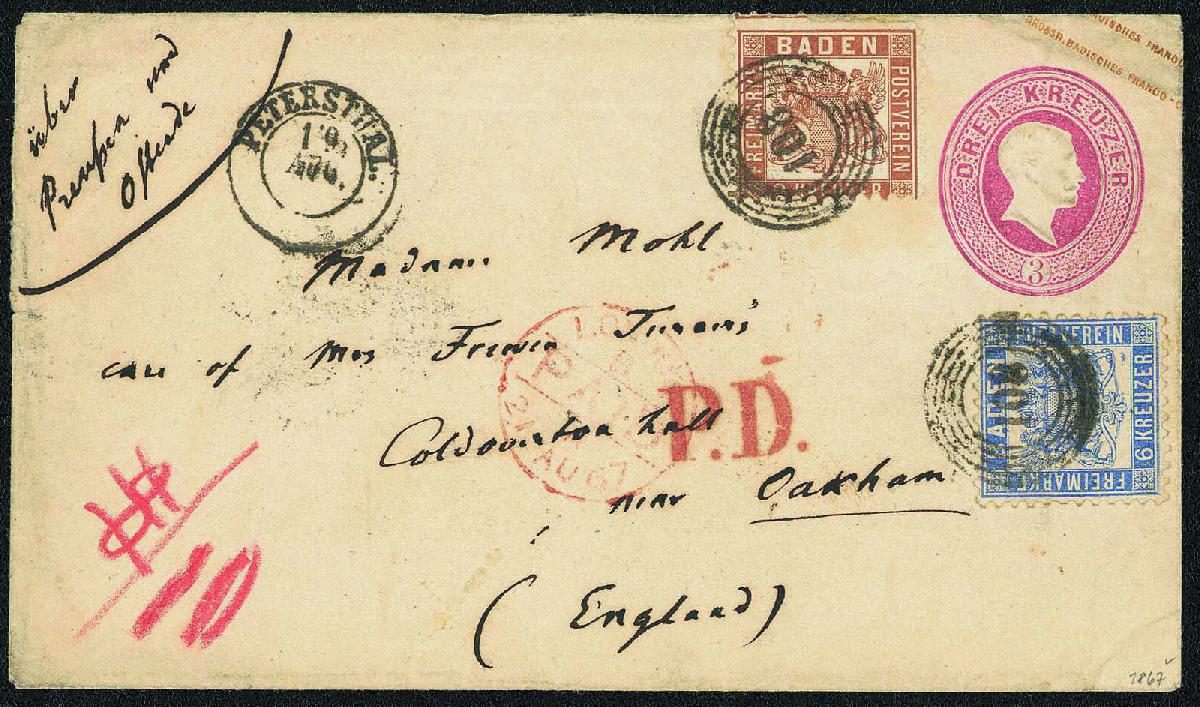 über
Preußen und
Ostende
PETERSTHAL.
19
AUG.
BADEN
FREIMARKE
POSTVEREIN
108
DEUTSCHES FRANCO
GROSSH. BADISCHES FRANCO-C
DREI KREUZER
3
Madame Mohl
care of Mrs Frewen Turner's
Coldoverton hall
near Oakham
(England)
LO
PAID
21 AU 67
P.D.
BADEN
POSTVEREIN
6 KREUZER
FREIMARKE
108
10
1867